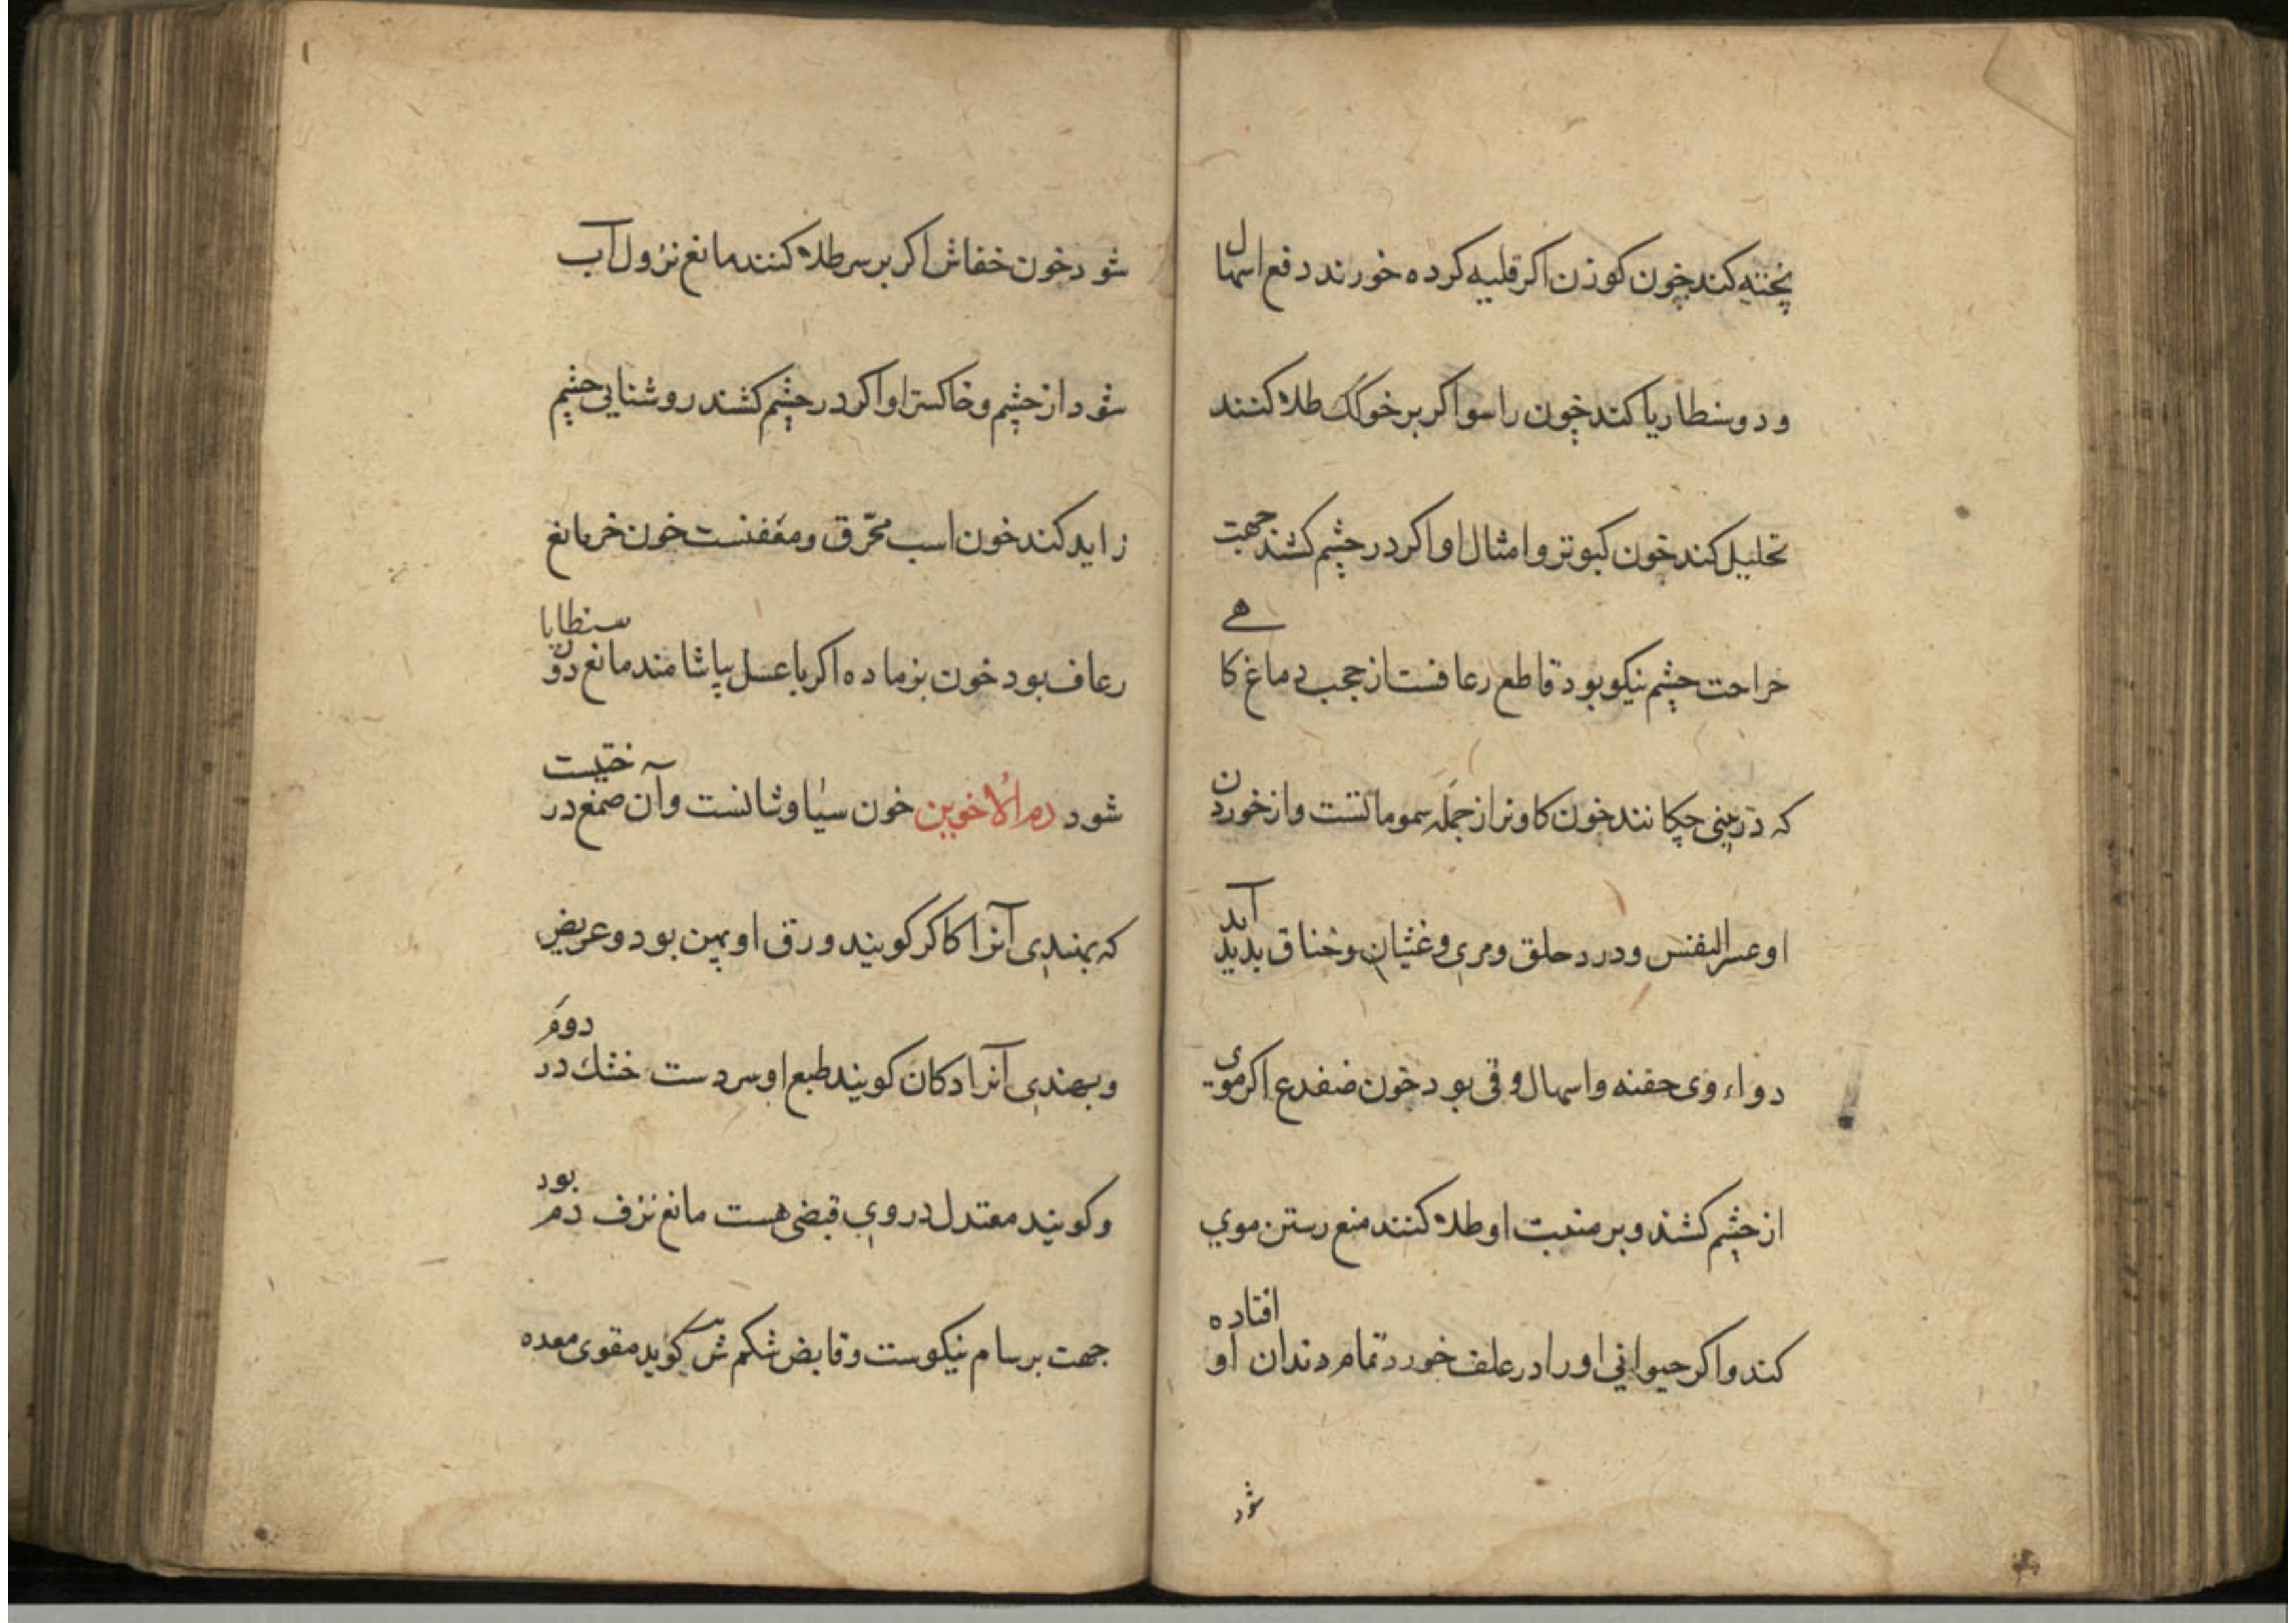 پخته کند خون کوزن اکر قلیه کرده خورند دفع اسهال
و دوسنطاریا کند خون راسو اکر بر خوک طلا کنند
تحلیل کند خون کبوتر و امثال او اکر در چشم کشند جهت
جراحت چشم نیکو بود قاطع رعافست از حجب دماغ کاهی
که در بینی چکانند خون کاو نر از جمله سموماتست و از خوردن
او عسر النفس و درد حلق و مری و غثیان و خناق بدید آید
دواء وی حقنه و اسهال و قی بود خون ضفدع اکر موی
از چشم کشند و بر منبت او طلا کنند منع رستن موی
کند و اکر حیوانی او را در علف خورد تمام دندان او افتاده
شود
شود خون خفاش اکر بر سر طلا کنند مانع نزول آب
شود از چشم و خاکستر او اکر در چشم کشند روشنایی چشم
زاید کند خون اسب محرق و معفنست خون خر مانع
رعاف بود خون بز ماده اکر با عسل بیاشامند مانع دوسنطایا
شود دم الاخوین خون سیاوشانست و آن صمغ درختیست
که بهندی آنرا کاکر کویند ورق او پهن بود و عریض
و بهندی آنرا دکان کویند طبع او سردست خشك در دوم
و کویند معتدل در وی قبضی هست مانع نزف دم بود
جهت برسام نیکوست و قابض شکم کوید مقوی معده